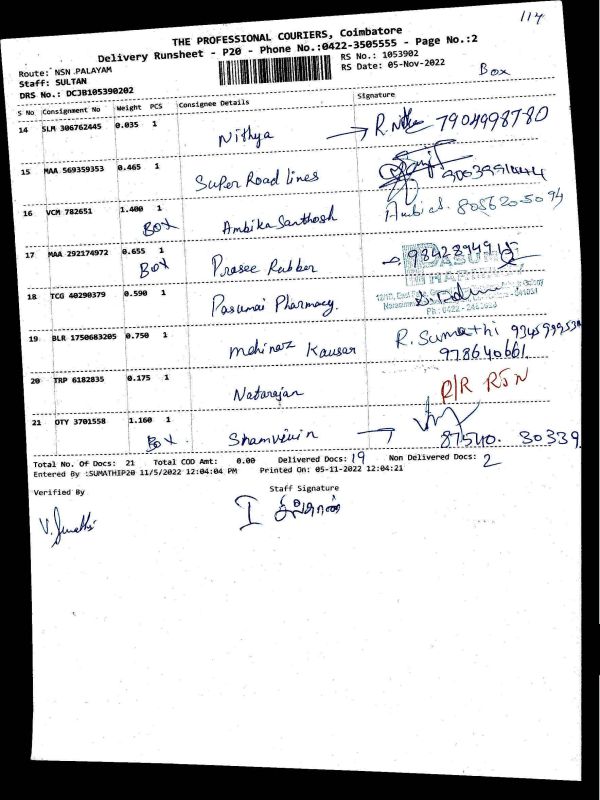 114
THE PROFESSIONAL COURIERS, Coimbatore
Delivery Runsheet - P20 - Phone No.:0422-3505555 - Page No.:2
Route: NSN PALAYAM
RS No.: 1053902
Staff: SULTAN
RS Date: 05-Nov-2022
Box
DRS No.: DCJB105390202
S No Consignment No Weight PCS Consignee Details Signature
14 SLM 306762445 0.035 1 Nithya R. 7904998780
15 MAA 569359353 0.465 1 Super Road lines
16 VCM 782651 1.400 1 Box Ambika Santhosh
17 MAA 292174972 0.655 1 Box Prasee Rubber
18 TCG 40290379 0.590 1 Pasumai Pharmacy.
Ph : 0422 -
19 BLR 1750683205 0.750 1 mehinaz Kausar R. Sumathi
978640661
20 TRP 6182835 0.175 1 Natarajan R/R RSN
21 OTY 3701558 1.160 1 Box 87540. 30339
Total No. Of Docs: 21 Total COD Amt: 0.00 Delivered Docs: 19 Non Delivered Docs: 2
Entered By :SUMATHIP20 11/5/2022 12:04:04 PM Printed On: 05-11-2022 12:04:21
Verified By Staff Signature